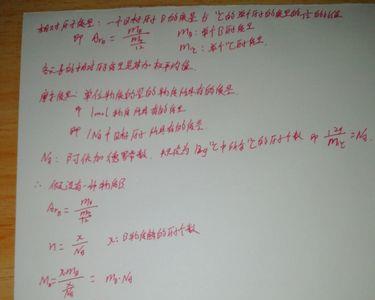 相对原子质量：一个目标原子B的质量与¹²C的单个原子的质量的1/12的比值
即 A_{rB} = m_B / (m_C/12)  m_B：单个B的质量
m_C：单个¹²C的质量
各元素的相对原子质量是其加权平均值
摩尔质量：单位物质的量的物质所具有的质量
即 1mol物质所具有的质量
即 1N_A个目标原子所具有的质量
N_A：阿伏加德罗常数，规定为12g¹²C中所含¹²C的原子个数 即 12g/m_C = N_A
∴ 假设有一种物质B
A_{rB} = m_B / (m_C/12)
n = x/N_A  x：B物质的原子个数
M_B = x m_B / (x/N_A) = m_B·N_A